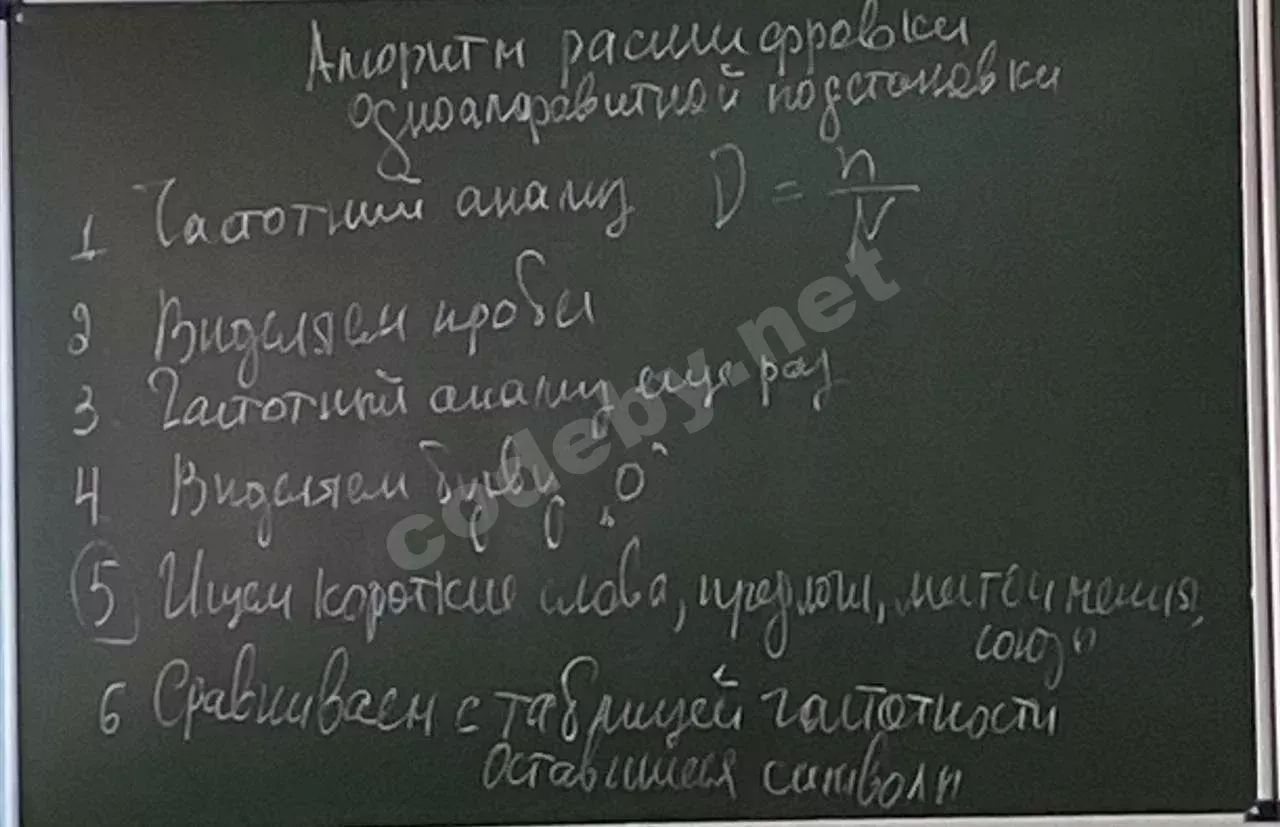 Алгоритм расшифровки
одноалфавитной подстановки
1 Частотный анализ D = n/N
2 Виделяем пробел
3 Частотный анализ еще раз
4 Виделяем букву „О“
5 Ищем короткие слова, предлоги, местоимения,
союзы
6 Сравниваем с таблицей частотности
оставшиеся символы
codeby.net